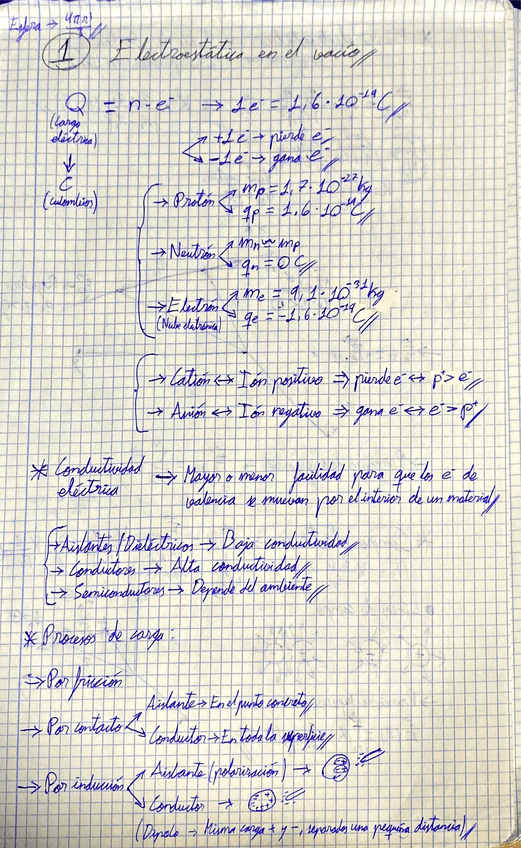 Esfera → 4πr²
1 Electrostática en el vacío
Q = n·e⁻ → 1e⁻ = 1,6·10⁻¹⁹ C
(carga
eléctrica)
↓
C
(culombios)
+1e⁻ → pierde e⁻
-1e⁻ → gana e⁻
→ Protón
mp = 1,7·10⁻²⁷ kg
qp = 1,6·10⁻¹⁹ C
→ Neutrón
mn ≈ mp
qn = 0 C
→ Electrón
(Nube electrónica)
me = 9,1·10⁻³¹ kg
qe = -1,6·10⁻¹⁹ C
→ Catión ↔ Ión positivo ⇒ pierde e⁻ ↔ p⁺ > e⁻
→ Anión ↔ Ión negativo ⇒ gana e⁻ ↔ e⁻ > p⁺
* Conductividad
eléctrica
→ Mayor o menor facilidad para que los e⁻ de
valencia se muevan por el interior de un material
→ Aislantes/Dieléctricos → Baja conductividad
→ Conductores → Alta conductividad
→ Semiconductores → Depende del ambiente
* Procesos de carga:
→ Por fricción
→ Por contacto
Aislante → En el punto concreto
Conductor → En toda la superficie
→ Por inducción
Aislante (polarización) →
Conductor →
(Dipolo → Misma carga + y -, separados una pequeña distancia)